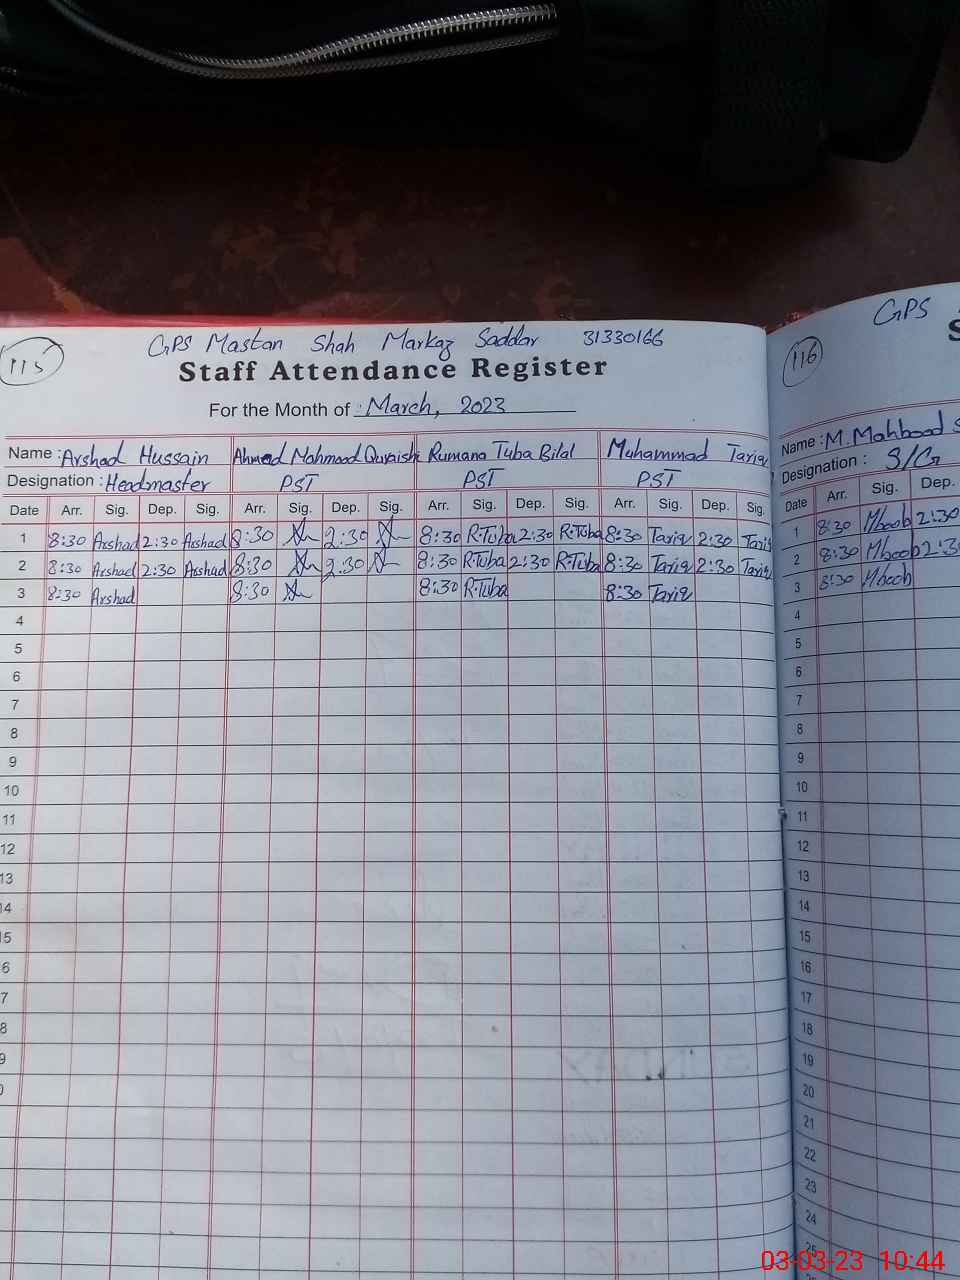 GPS Mastan Shah Markaz Saddar 31330166
115
Staff Attendance Register
For the Month of : March, 2023
Name : Arshad Hussain Ahmad Mahmood Quraishi Rumana Tuba Bilal Muhammad Tariq
Designation : Headmaster PST PST PST
Date Arr. Sig. Dep. Sig. Arr. Sig. Dep. Sig. Arr. Sig. Dep. Sig. Arr. Sig. Dep. Sig.
1 8:30 Arshad 2:30 Arshad 8:30 2:30 8:30 R.Tuba 2:30 R.Tuba 8:30 Tariq 2:30 Tariq
2 8:30 Arshad 2:30 Arshad 8:30 2:30 8:30 R.Tuba 2:30 R.Tuba 8:30 Tariq 2:30 Tariq
3 8:30 Arshad 8:30 8:30 R.Tuba 8:30 Tariq
4
5
6
7
8
9
10
11
12
13
14
15
6
7
8
9
0
GPS
S
116
Name : M. Mahbood S
Designation : S/G
Date Arr. Sig. Dep.
1 8:30 Mboob 2:30
2 8:30 Mboob 2:30
3 8:30 Mboob
4
5
6
7
8
9
10
11
12
13
14
15
16
17
18
19
20
21
22
23
24
25
03-03-23 10:44